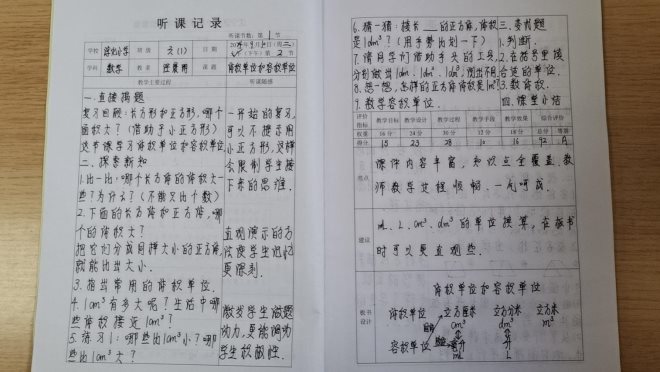 听课记录
听课节数：第 1 节
学校 班级 六(1) 日期 2024年9月 日(周二)
(下午) 第 2 节
学科 数学 教者 课题 体积单位和容积单位
教学主要过程 听课随感
一.直接揭题
复习回顾：长方形和正方形，哪个
面积大？(借助于小正方形)
这节课学习体积单位和容积单位
二.探索新知
1.比一比：哪个长方体的体积大一
些？为什么？(不能只比个数)
2.下面的长方体和正方体，哪
个的体积大？
把它们分成同样大小的正方体，
就能比出大小.
3.指出常用的体积单位.
4.1cm³有多大呢？生活中哪
些体积接近1cm³？
5.练习1：哪些比1cm³小？哪
些比1cm³大？
一开始的复习，
可以不提示用
小正方形，这样
会限制学生接
下来的思维.
直观演示的方
法使学生记忆
更深刻.
激发学生做题
动力，更能调动
学生积极性.
6.猜一猜：棱长 的正方体，体积
是1dm³？(用手势比划一下)
7.请同学们借助手头的工具，
分别做出1m、1dm²、1dm³，
8.想一想，怎样的正方体体积是1m³？
9.教学容积单位.
三.巩固题
1.判断.
2.在括号里填
合适的单位.
3.数体积.
四.课堂小结
评价指标 教学目标 教学设计 教学过程 教学手段 教学效果 综合评价
权重 16分 24分 30分 12分 18分 总分 等第
得分 15 23 28 10 16 92 A
课件内容丰富，知识点全覆盖，教
师教学过程顺畅，一气呵成.
建议
mL、L、cm³、dm³的单位换算，在板书
时可以更直观些.
板书设计
体积单位和容积单位
体积单位 立方厘米 立方分米 立方米
cm³ dm³ m³
容积单位 毫升 升
mL L